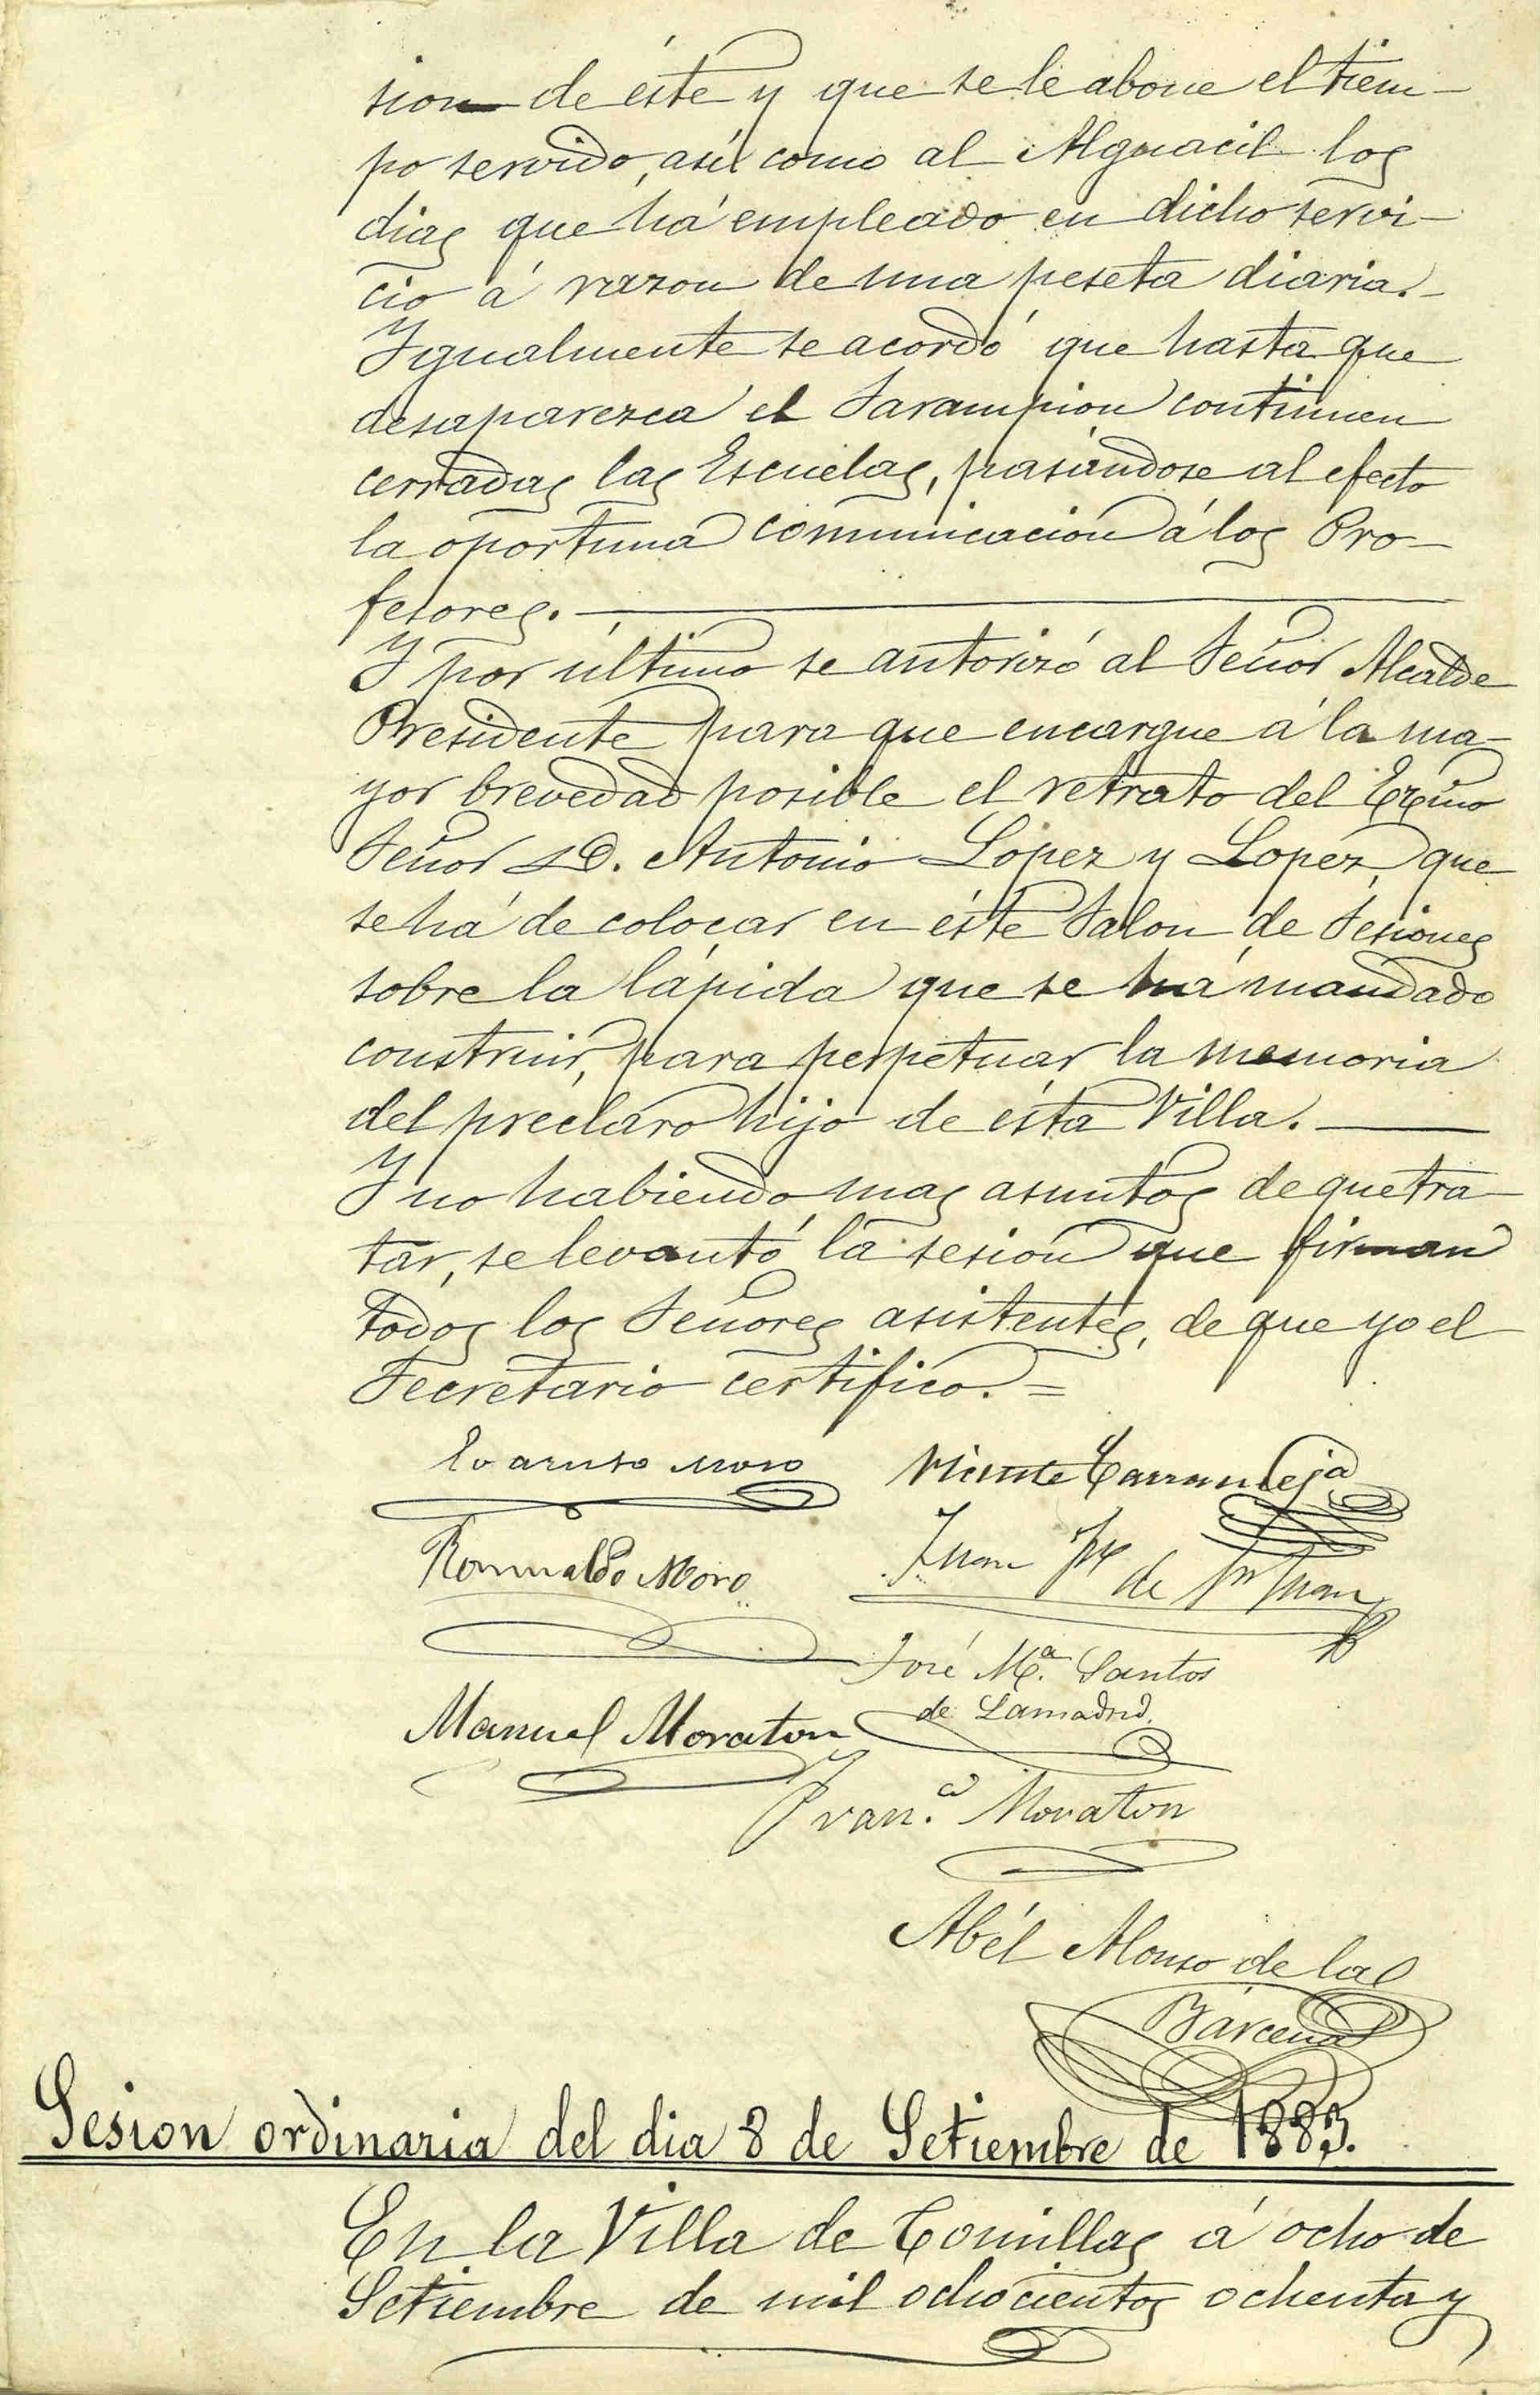 sion de éste y que se le abone el tiem-
po servido, así como al Alguacil los
dias que há empleado en dicho servi-
cio á razon de una peseta diaria.-
Igualmente se acordó que hasta que
desaparezca el Sarampion continuen
cerradas las Escuelas, pasándose al efecto
la oportuna comunicacion á los Pro-
fesores.
Y por último se autorizó al Señor Alcalde
Presidente para que encargue á la ma-
yor brevedad posible el retrato del Excmo
Señor D. Antonio Lopez y Lopez, que
se há de colocar en éste Salon de Sesiones
sobre la lápida que se há mandado
construir, para perpetuar la memoria
del preclaro hijo de ésta Villa.
Y no habiendo mas asuntos de que tra-
tar, se levantó la sesion que firman
todos los Señores asistentes, de que yo el
Secretario certifico.=
Evaristo Moro Vicente Carrandeja
Romualdo Moro Juan de Sn Juan
José Mª. Santos
de Lamadrid.
Manuel Moraton
Fran.co Moraton
Abél Alonso de la
Bárcena
Sesion ordinaria del dia 8 de Setiembre de 1883.
En la Villa de Comillas á ocho de
Setiembre de mil ochocientos ochenta y